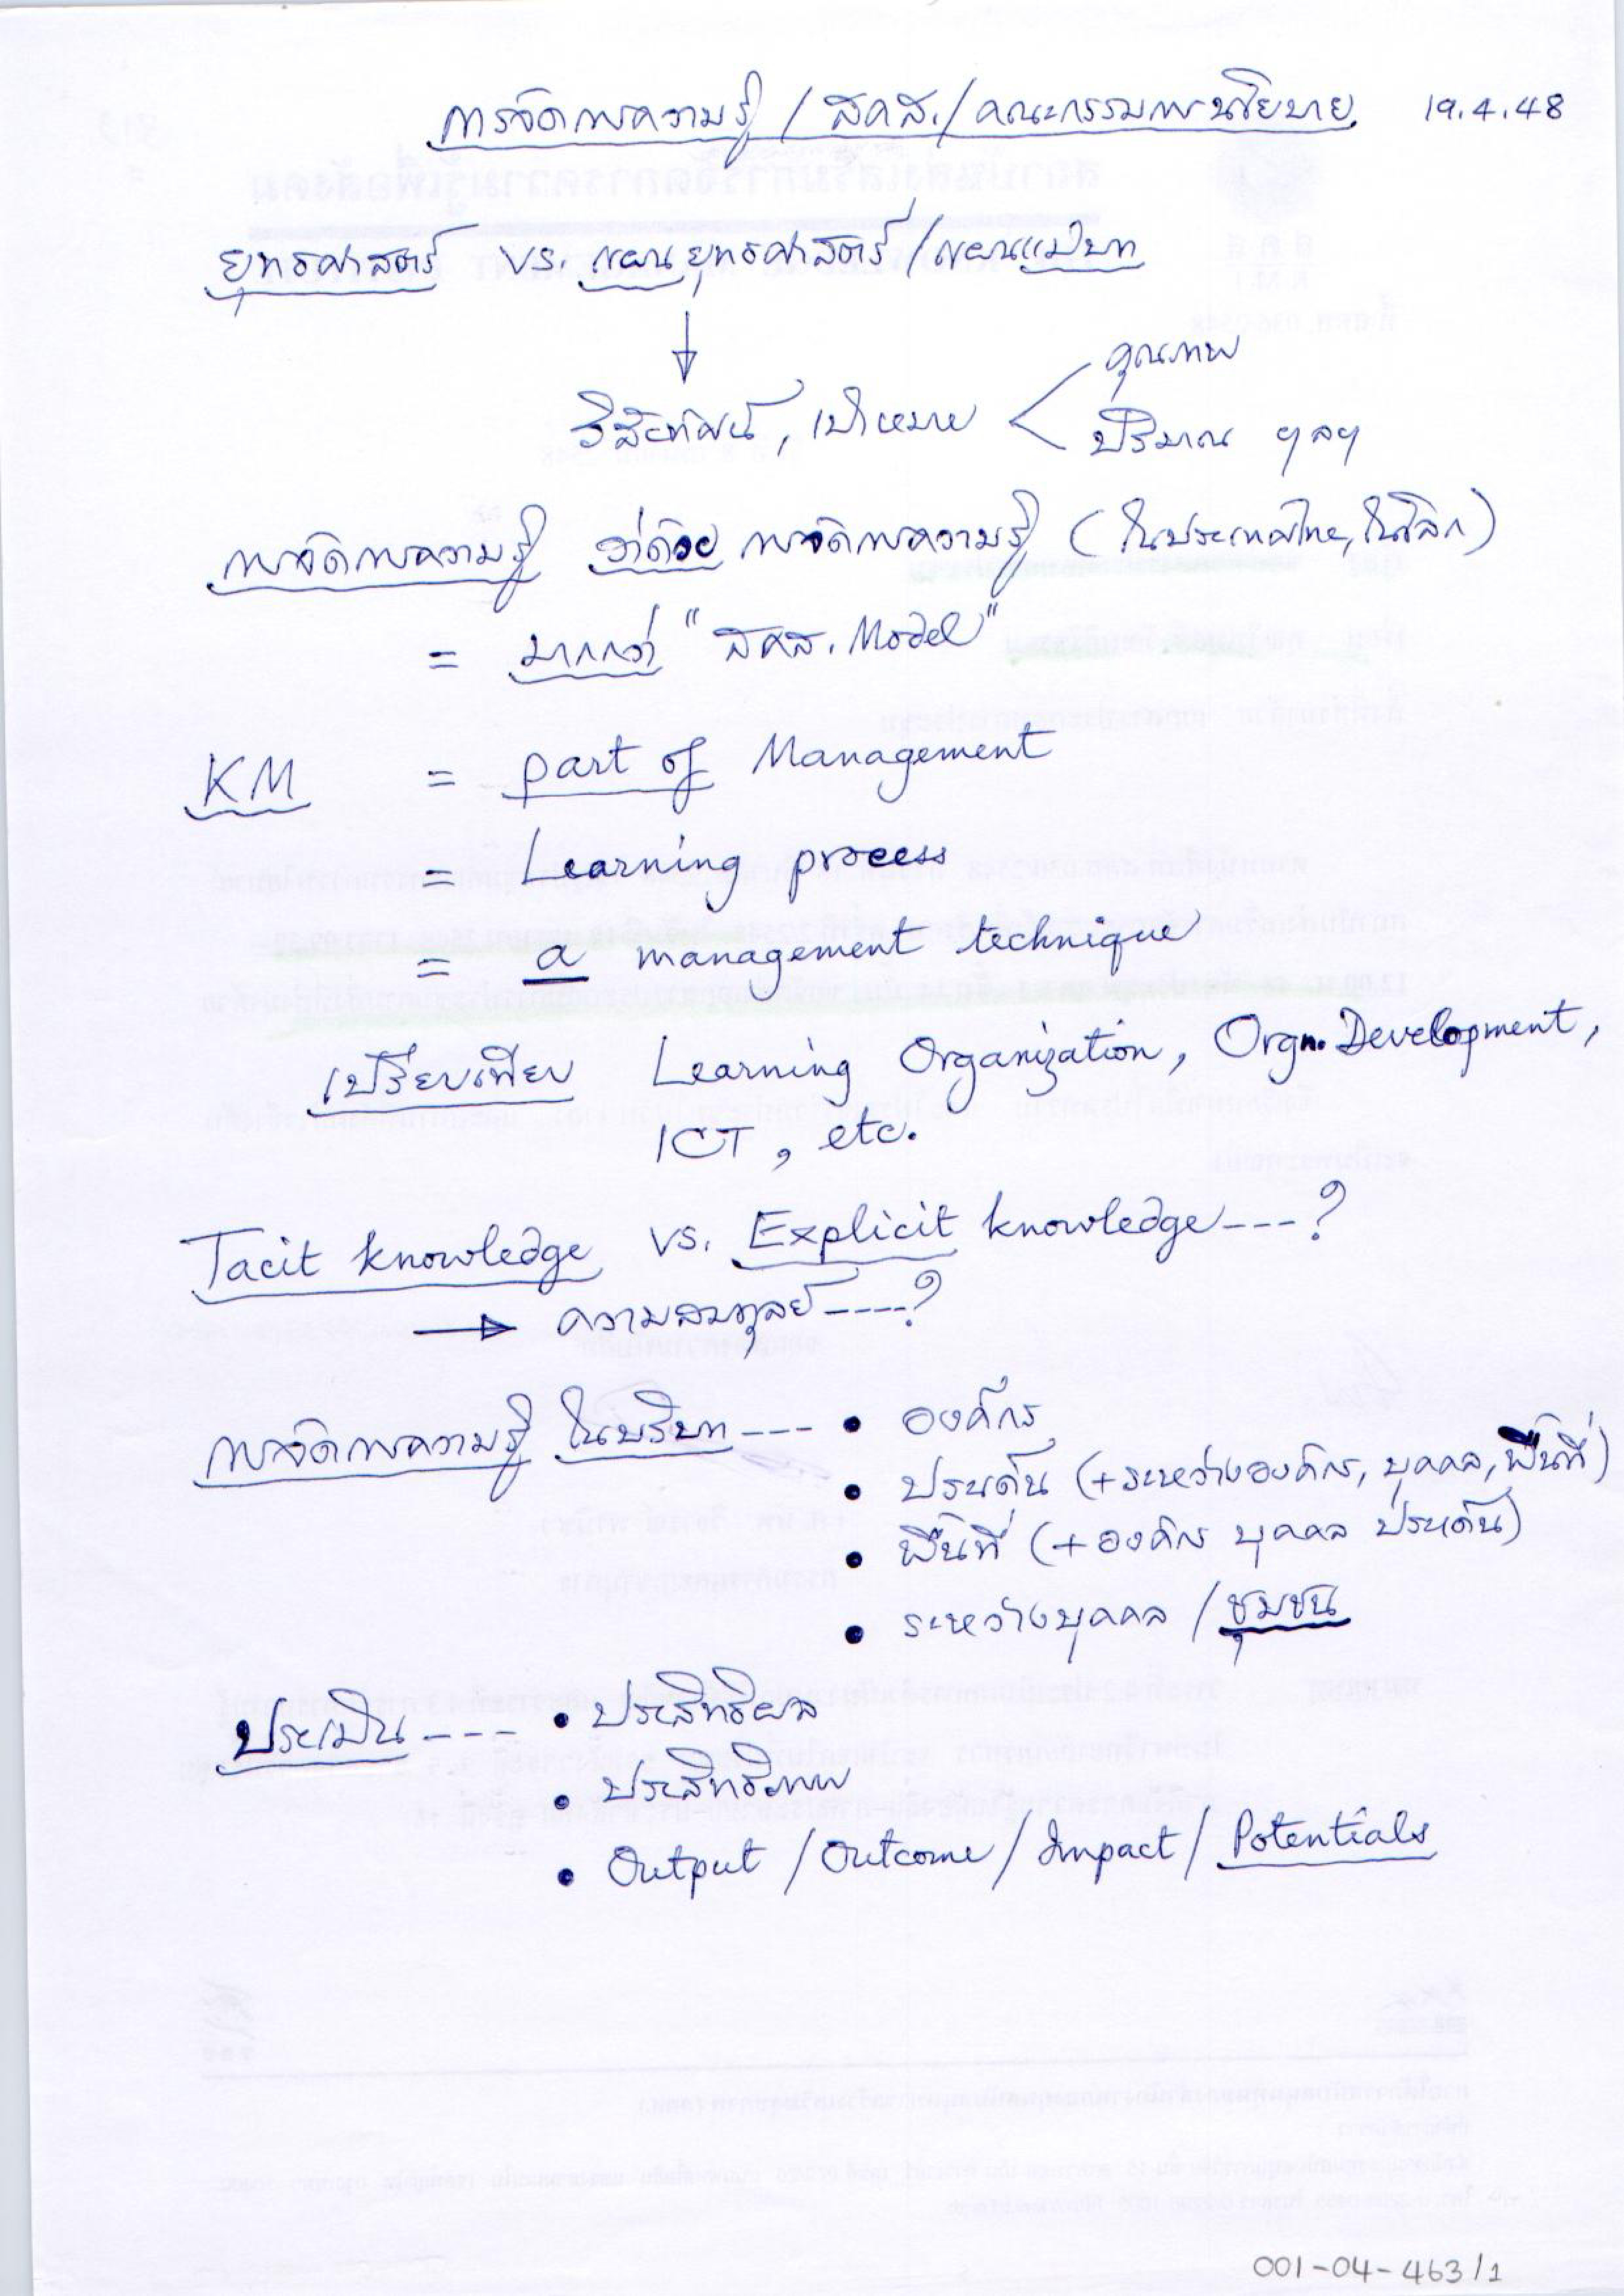 การจัดการความรู้ / สคส. / คณะกรรมการนโยบาย 19.4.48
ยุทธศาสตร์ vs. แผนยุทธศาสตร์ / แผนแม่บท
วิสัยทัศน์, เป้าหมาย
คุณภาพ
ปริมาณ ฯลฯ
การจัดการความรู้ ว่าด้วย การจัดการความรู้ (ในประเทศไทย, ในโลก)
= มากกว่า "สคส. Model"
KM = part of Management
= Learning process
= a management technique
เปรียบเทียบ Learning Organization, Orgn. Development,
ICT, etc.
Tacit knowledge vs. Explicit knowledge ---?
→ ความสมดุลย์ ----?
การจัดการความรู้ ในบริบท --- • องค์กร
• ประเด็น (+ระหว่างองค์กร, บุคคล, พื้นที่)
• พื้นที่ (+องค์กร บุคคล ประเด็น)
• ระหว่างบุคคล / ชุมชน
ประเมิน --- • ประสิทธิผล
• ประสิทธิภาพ
• Output / Outcome / Impact / Potentials
001-04-463/1